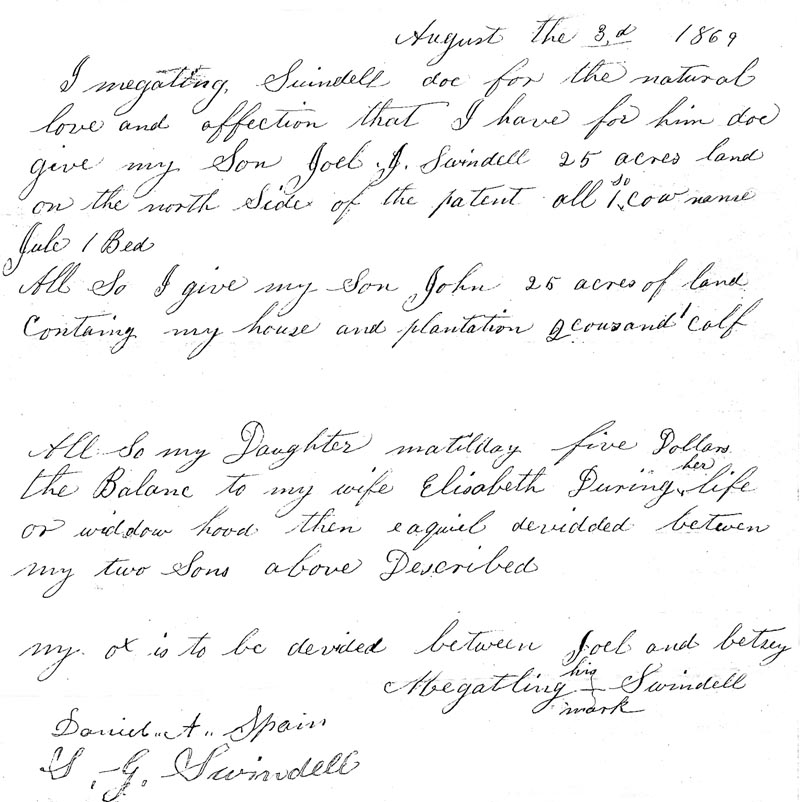 August the 3,d 1869
I megatling, Swindell doe for the natural
love and affection that I have for him doe
give my Son Joel J. Swindell 25 acres land
on the north Side of the patent all so 1 cow name
Jule 1 Bed
All So I give my Son John 25 acres of land
Containg my house and plantation 2 cows and 1 calf
All So my Daughter matilday five Dollars
the Balanc to my wife Elisabeth During her life
or widdow hood then eaquiel devidded betwen
my two Sons above Described
my ox is to be devided between Joel and betsey
Megatling his Swindell
mark
Daniel. A. Spain
S. G. Swindell